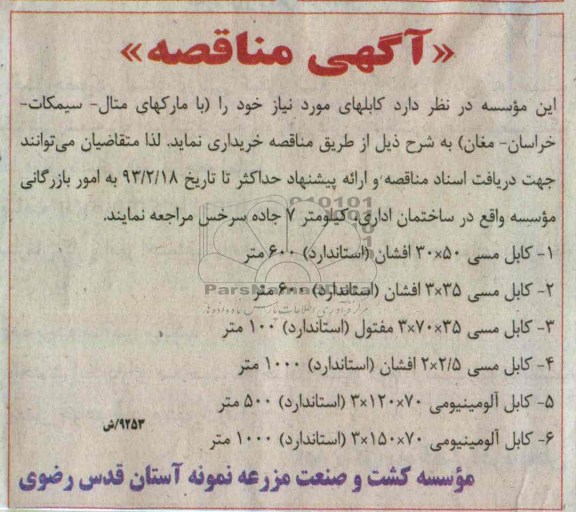 «آگهی مناقصه»
این مؤسسه در نظر دارد کابلهای مورد نیاز خود را (با مارکهای متال- سیمکات-
خراسان- مغان) به شرح ذیل از طریق مناقصه خریداری نماید. لذا متقاضیان می‌توانند
جهت دریافت اسناد مناقصه و ارائه پیشنهاد حداکثر تا تاریخ ۹۳/۲/۱۸ به امور بازرگانی
مؤسسه واقع در ساختمان اداری، کیلومتر ۷ جاده سرخس مراجعه نمایند.
۱- کابل مسی ۵۰×۳۰ افشان (استاندارد) ۶۰۰ متر
۲- کابل مسی ۳۵×۳ افشان (استاندارد) ۶۰۰ متر
۳- کابل مسی ۳۵×۷۰×۳ مفتول (استاندارد) ۱۰۰ متر
۴- کابل مسی ۲/۵×۲ افشان (استاندارد) ۱۰۰۰ متر
۵- کابل آلومینیومی ۷۰×۱۲۰×۳ (استاندارد) ۵۰۰ متر
۶- کابل آلومینیومی ۷۰×۱۵۰×۳ (استاندارد) ۱۰۰۰ متر
۹۲۵۳/ش
مؤسسه کشت و صنعت مزرعه نمونه آستان قدس رضوی